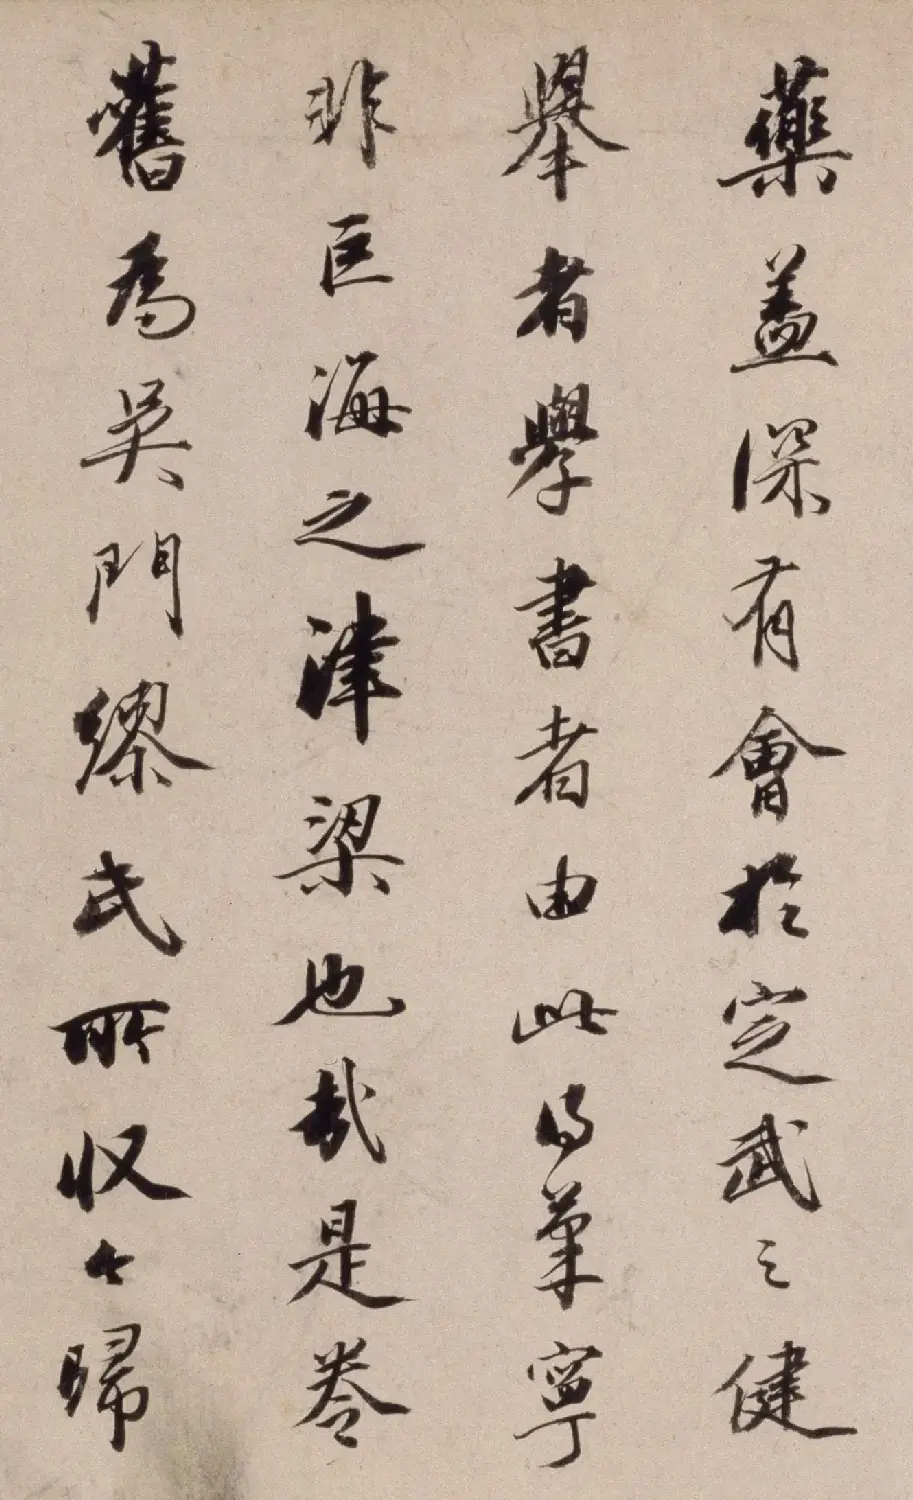 藥蓋深有會於定武之健
舉者學書者由此得筆寧
非巨海之津梁也哉是卷
舊為吳門繆氏所収今歸